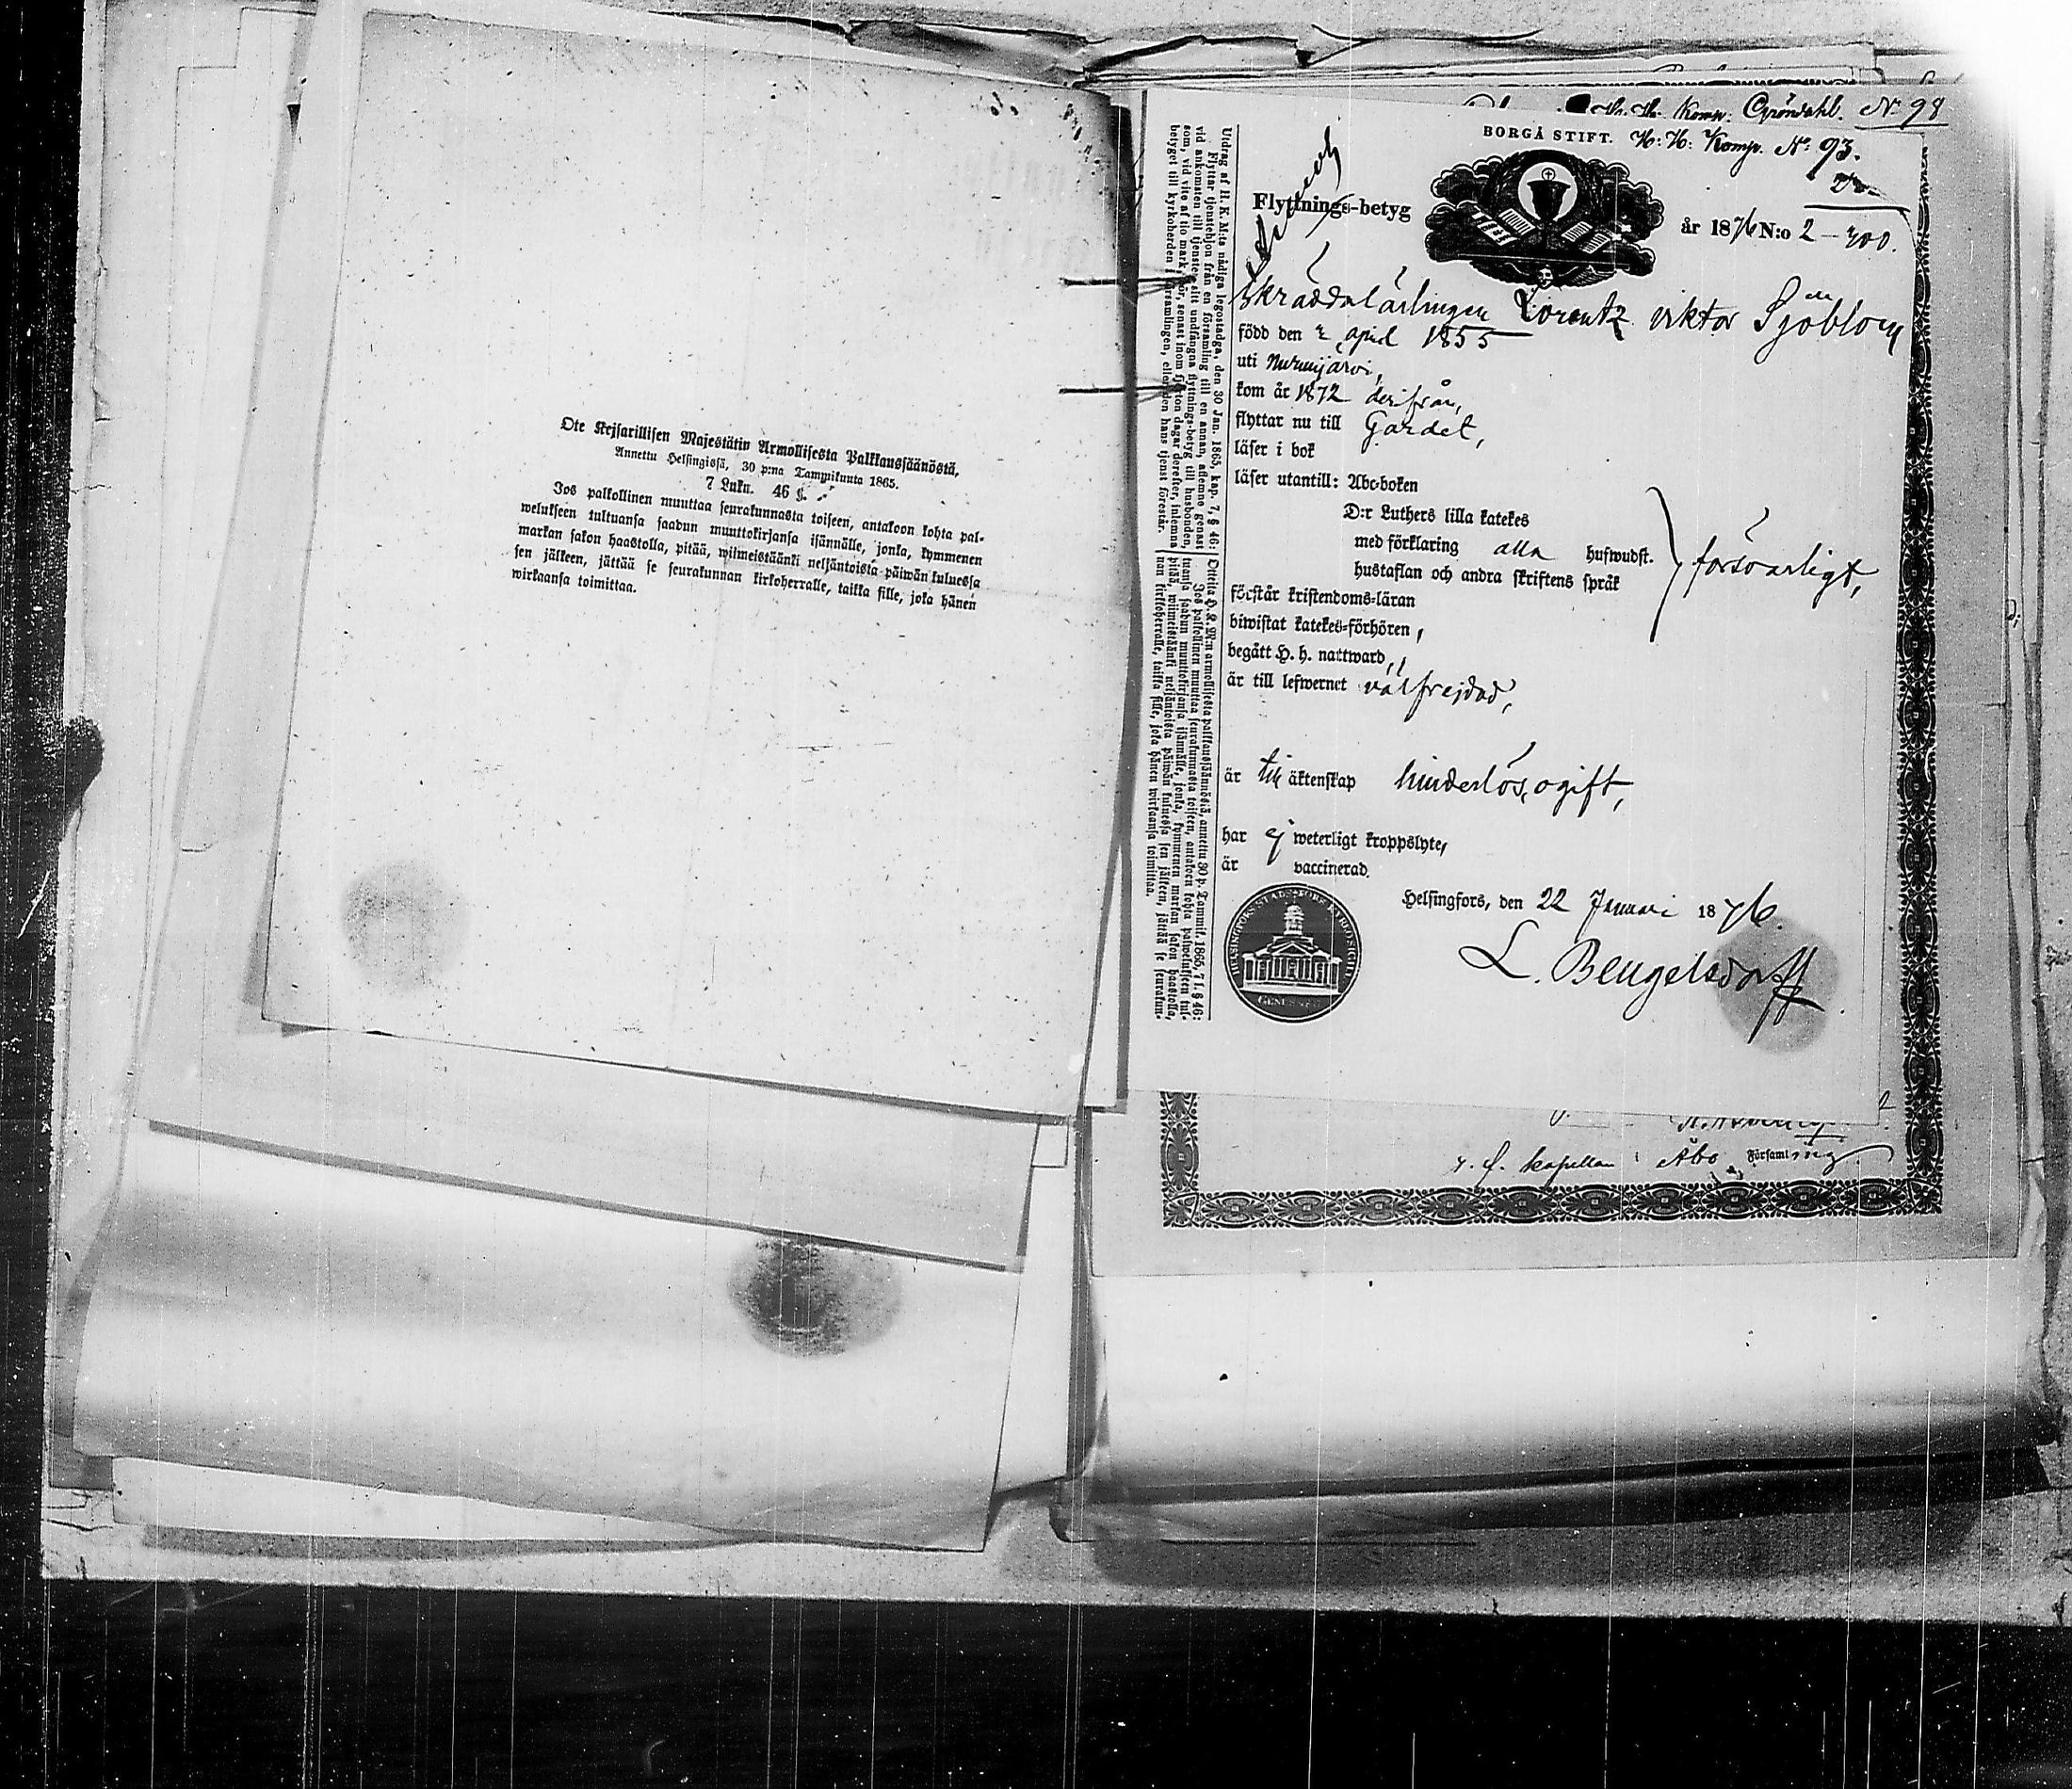 Ote Keisarillisen Majestätin Armollisesta Palkkaussäännöstä,
Annettu Helsingissä, 30 p:na Tammikuuta 1865.
7 Luku. 46 §.
Jos palkollinen muuttaa seurakunnasta toiseen, antakoon kohta pal-
welukseen tultuansa saadun muuttokirjansa isännälle, jonka, kymmenen
markan sakon haastolla, pitää, wiimeistäänki neljäntoista päiwän kuluessa
sen jälkeen, jättää se seurakunnan kirkoherralle, taikka sille, joka hänen
wirkaansa toimittaa.
Komp. Gröndahl. No 98
BORGÅ STIFT. H: H: Komp. No 93.
Flyttnings-betyg
år 1876 N:o 2 – 700.
Utdrag af H. K. M:ts nådiga legostadga, den 30 Jan. 1865, kap. 7, § 46:
Flyttar tjenstehjon från en församling till en annan, aflemne genast
vid ankomsten till tjensten sitt undfångna flyttnings-betyg till husbonden,
som, vid vite af tio mark, bör, senast inom fjorton dagar derefter, inlemna
betyget till kyrkoherden i församlingen, eller den hans tjenst förestår.
Otteita H. K. M:n armollisesta palkkaussäännöstä, annettu 30 p. Tammik. 1865, 7 l. § 46:
Jos palkollinen muuttaa seurakunnasta toiseen, antakoon kohta palwelukseen tul-
tuansa saadun muuttokirjansa isännälle, jonka, kymmenen markan sakon haastolla,
pitää, wiimeistäänki neljäntoista päiwän kuluessa sen jälkeen, jättää se seurakun-
nan kirkoherralle, taikka sille, joka hänen wirkaansa toimittaa.
Skräddarlärlingen Lorentz Viktor Sjöblom
född den 2 april 1855
uti Nurmijärvi,
kom år 1872 derifrån,
flyttar nu till Gardet,
läser i bok
läser utantill: Abc-boken
D:r Luthers lilla katekes
med förklaring alla hufwudst.
hustaflan och andra skriftens språk
försvarligt,
förstår kristendoms-läran
biwistat katekes-förhören,
begått H. h. nattward,
är till lefwernet välfrejdad,
är till äktenskap hinderlös, ogift,
har ej weterligt kroppslyte,
är vaccinerad.
Helsingfors, den 22 Januari 1876.
L. Bengelsdorff
kapellan i Åbo Församling